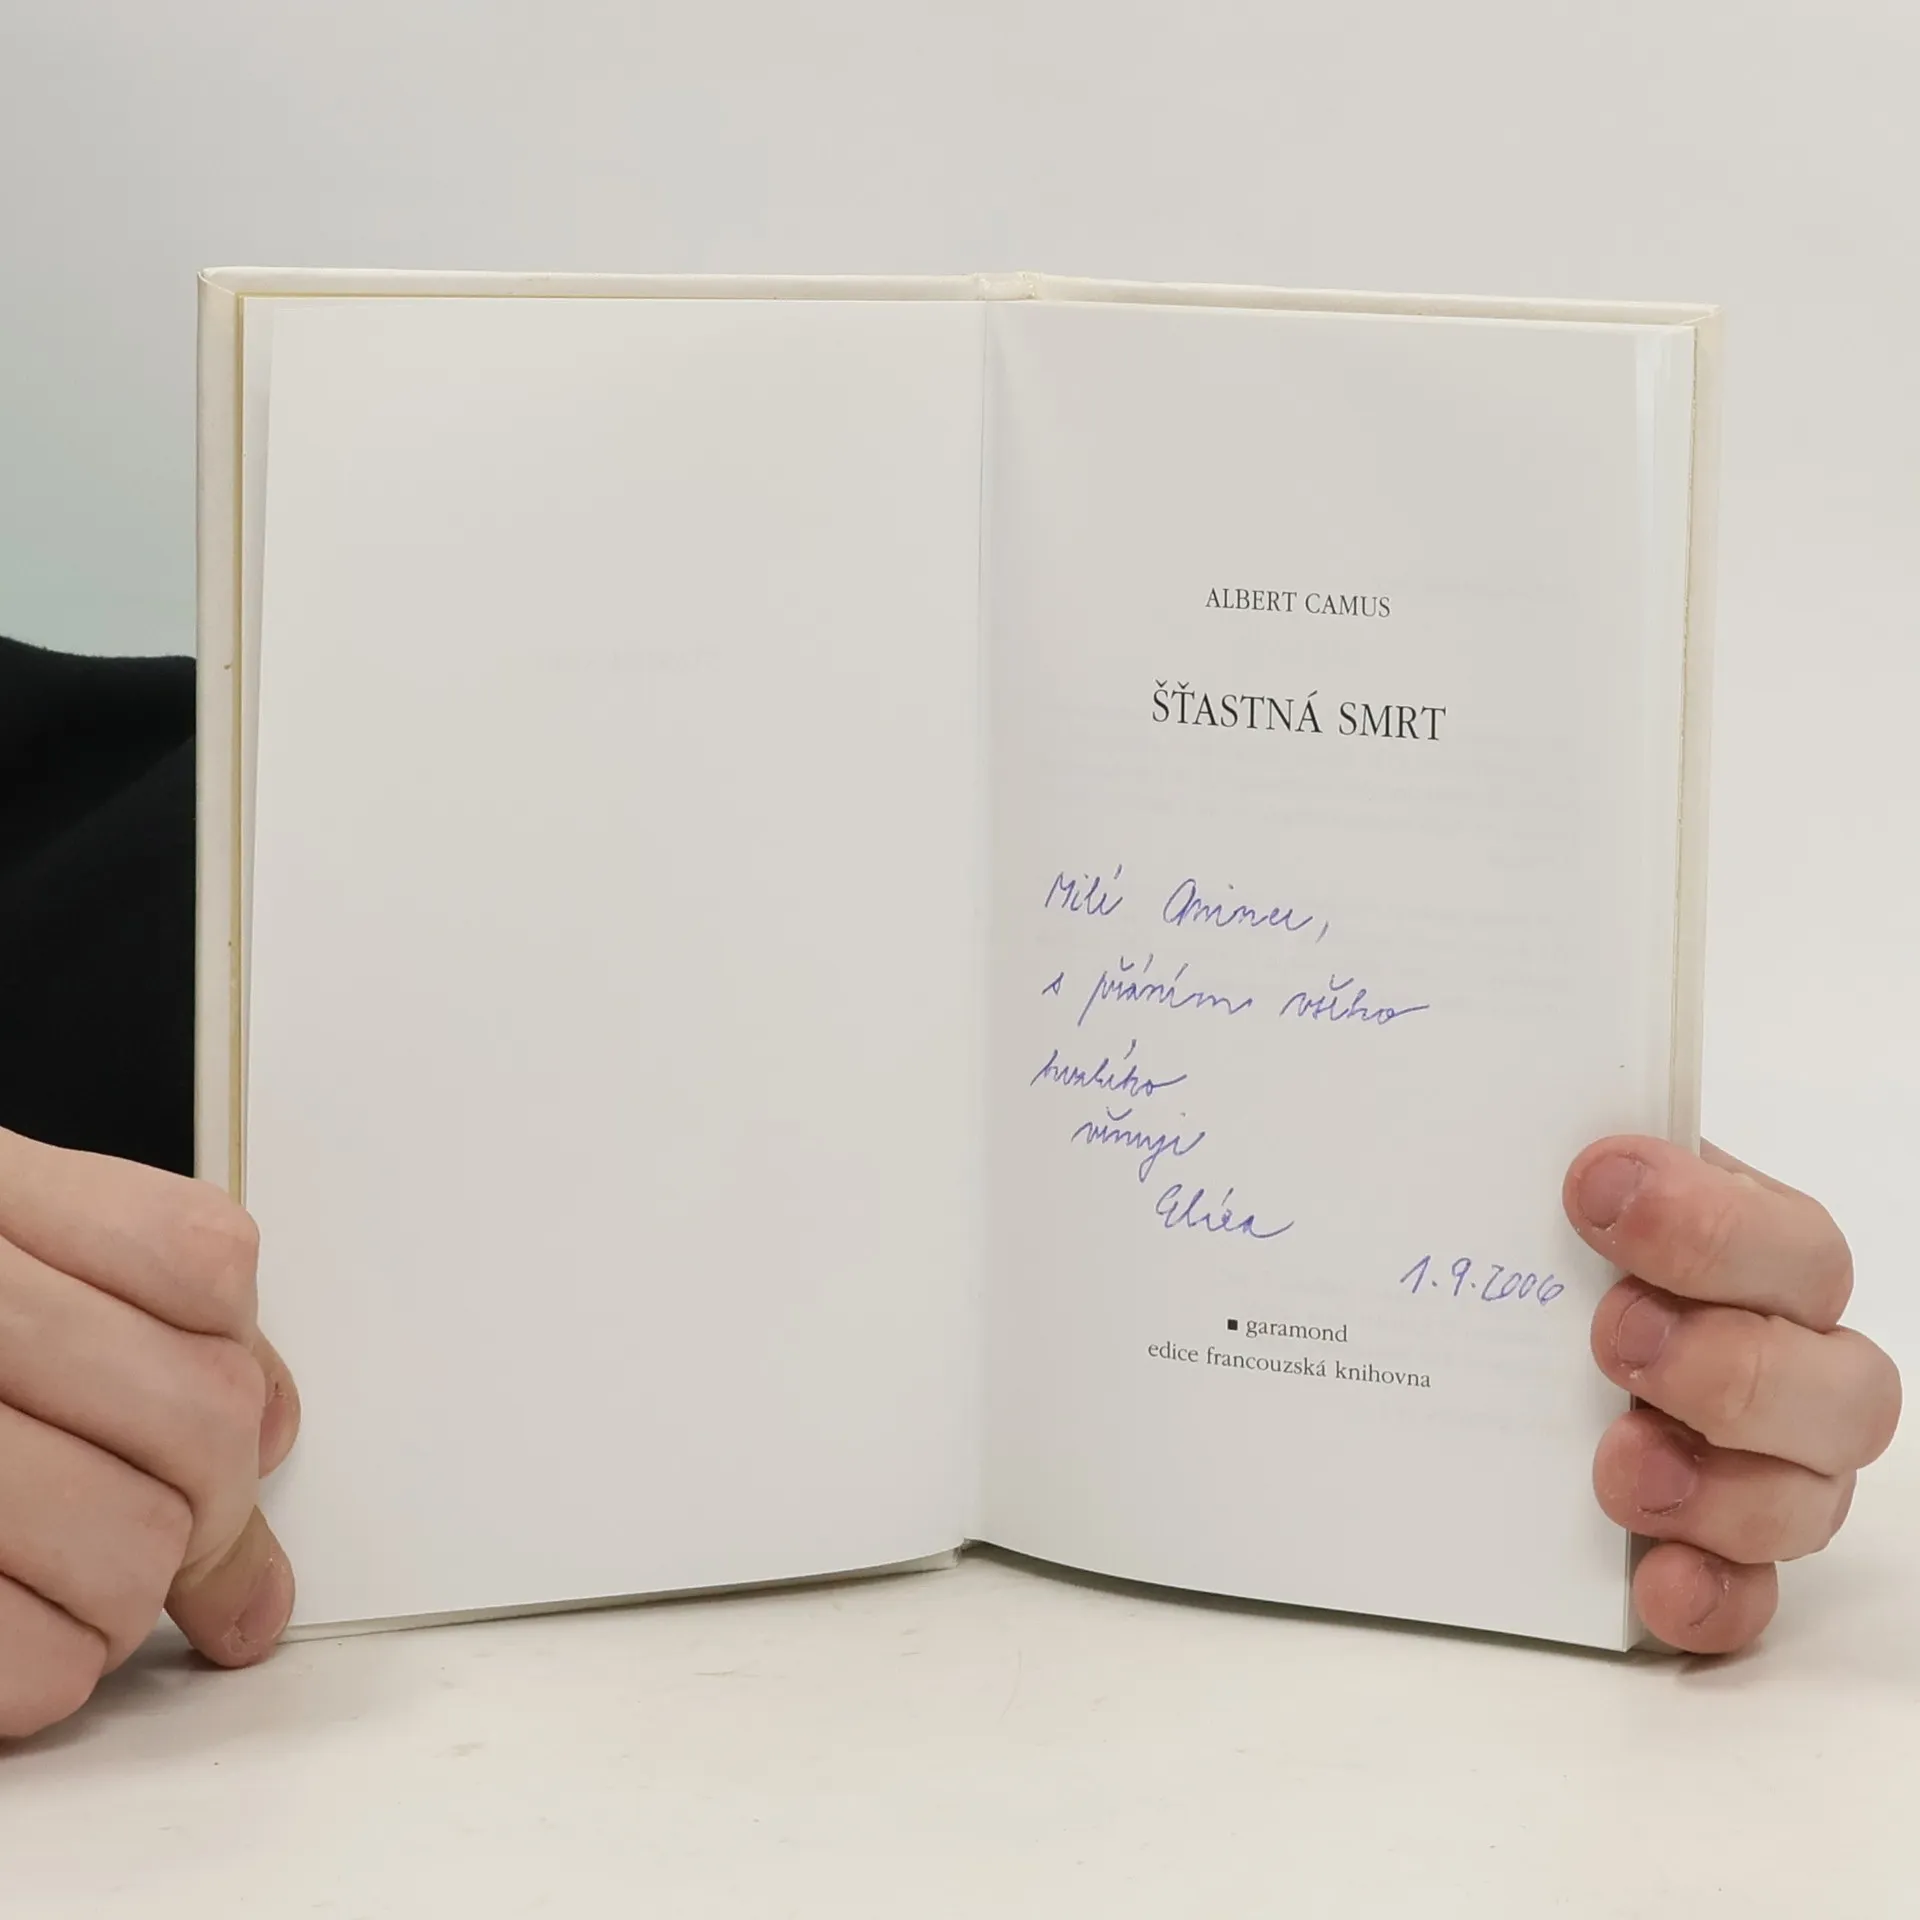 ALBERT CAMUS
ŠŤASTNÁ SMRT
Milé
s přáním všeho
hezkého
věnuje
1.9.2006
garamond
edice francouzská knihovna